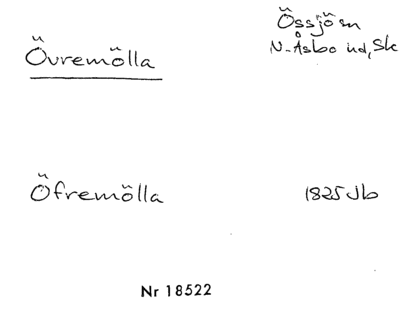 Övremölla
Össjö sn
N-Åsbo hd, Sk
Öfremölla
1825 Jb
Nr 18522